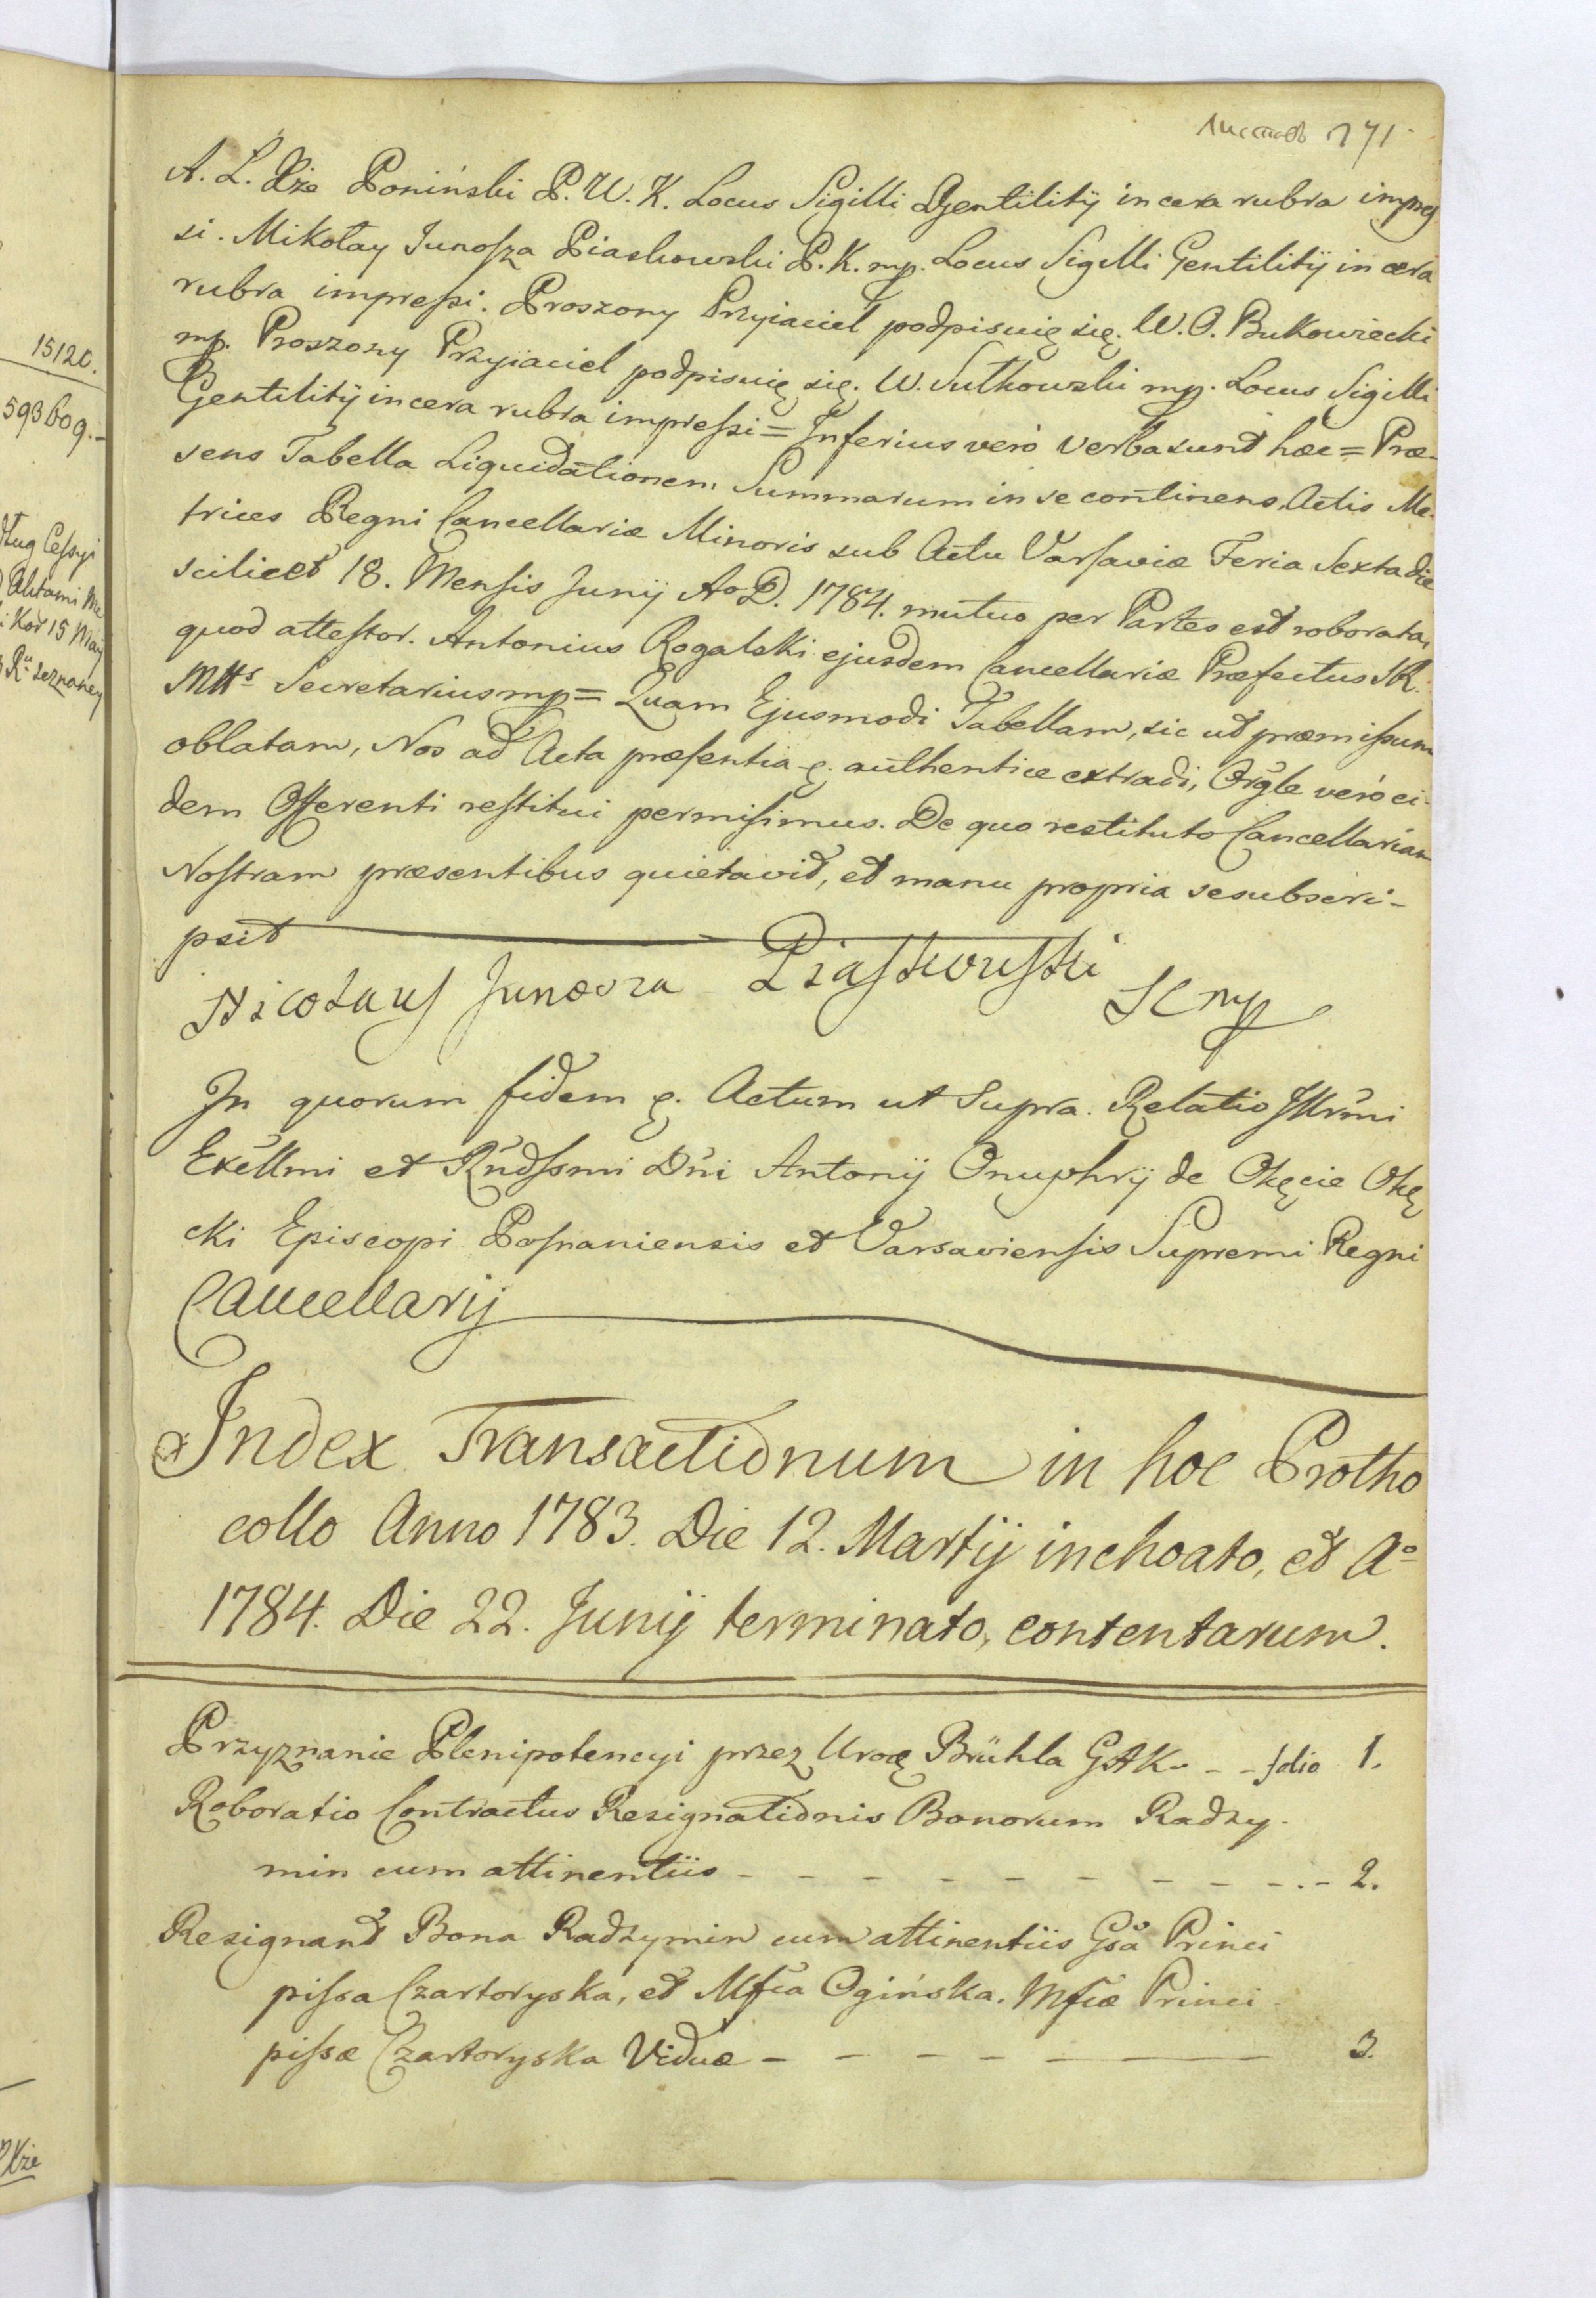 Листовъ 171
A. L. Xże Poniński P. W. K. Locus Sigilli Gentilitij in cera rubra impres
si. Mikołay Junosza Piaskowski P. K. mp. Locus Sigilli Gentilitij in cera
rubra impressi. Proszony Przyiaciel podpisuię się. W. O. Bukowiecki
mp. Proszony Przyiaciel podpisuię się. W. Sułkowski mp. Locus Sigilli
Gentilitij in cera rubra impressi = Inferius verò verba sunt hæc = Præ-
sens Tabella Liquidationem Summarum in se continens, Actis Me-
trices Regni Cancellariæ Minoris sub Actu Varsaviæ Feria Sexta die
scilicet 18. Mensis Junij Ao D. 1784. mutuo per Partes est roborata,
quod attestor. Antonius Rogalski ejusdem Cancellariæ Præfectus SR.
Mtts Secretarius mp = Quam Ejusmodi Tabellam, sic ut præmissum
oblatam, Nos ad Acta præsentia authentice extradi, Orgle verò ei-
dem Offerenti restitui permisimus. De quo restituto Cancellariam
Nostram præsentibus quietavit, et manu propria se subscri-
psit
Nicolaus Junosza Piaskowski SC mp
In quorum fidem Actum ut Supra. Relatio Illrmi
Excellmi et Rndssmi Dni Antonij Onuphrij de Okęcie Okę
cki Episcopi Posnaniensis et Varsaviensis Supremi Regni
Cancellarij
Index Transactionum in hoc Protho
collo Anno 1783. Die 12. Martij inchoato, et Ao
1784. Die 22. Junij terminato, contentarum.
Przyznanie Plenipotencyi przez Uroę Brühla GAK. - - folio 1.
Roboratio Contractus Resignationis Bonorum Radzy-
min cum attinentiis - - - - - - - - - 2.
Resignant Bona Radzymin cum attinentiis Gsa Princi
pissa Czartoryska, et Mfca Ogińska. Mfcæ Princi
pissæ Czartoryska Viduæ - - - - - 3.
15120.
593609.-
dług Cessyi
Aktami Me
Kor 15 Maij
Ru zeznaney
Xże